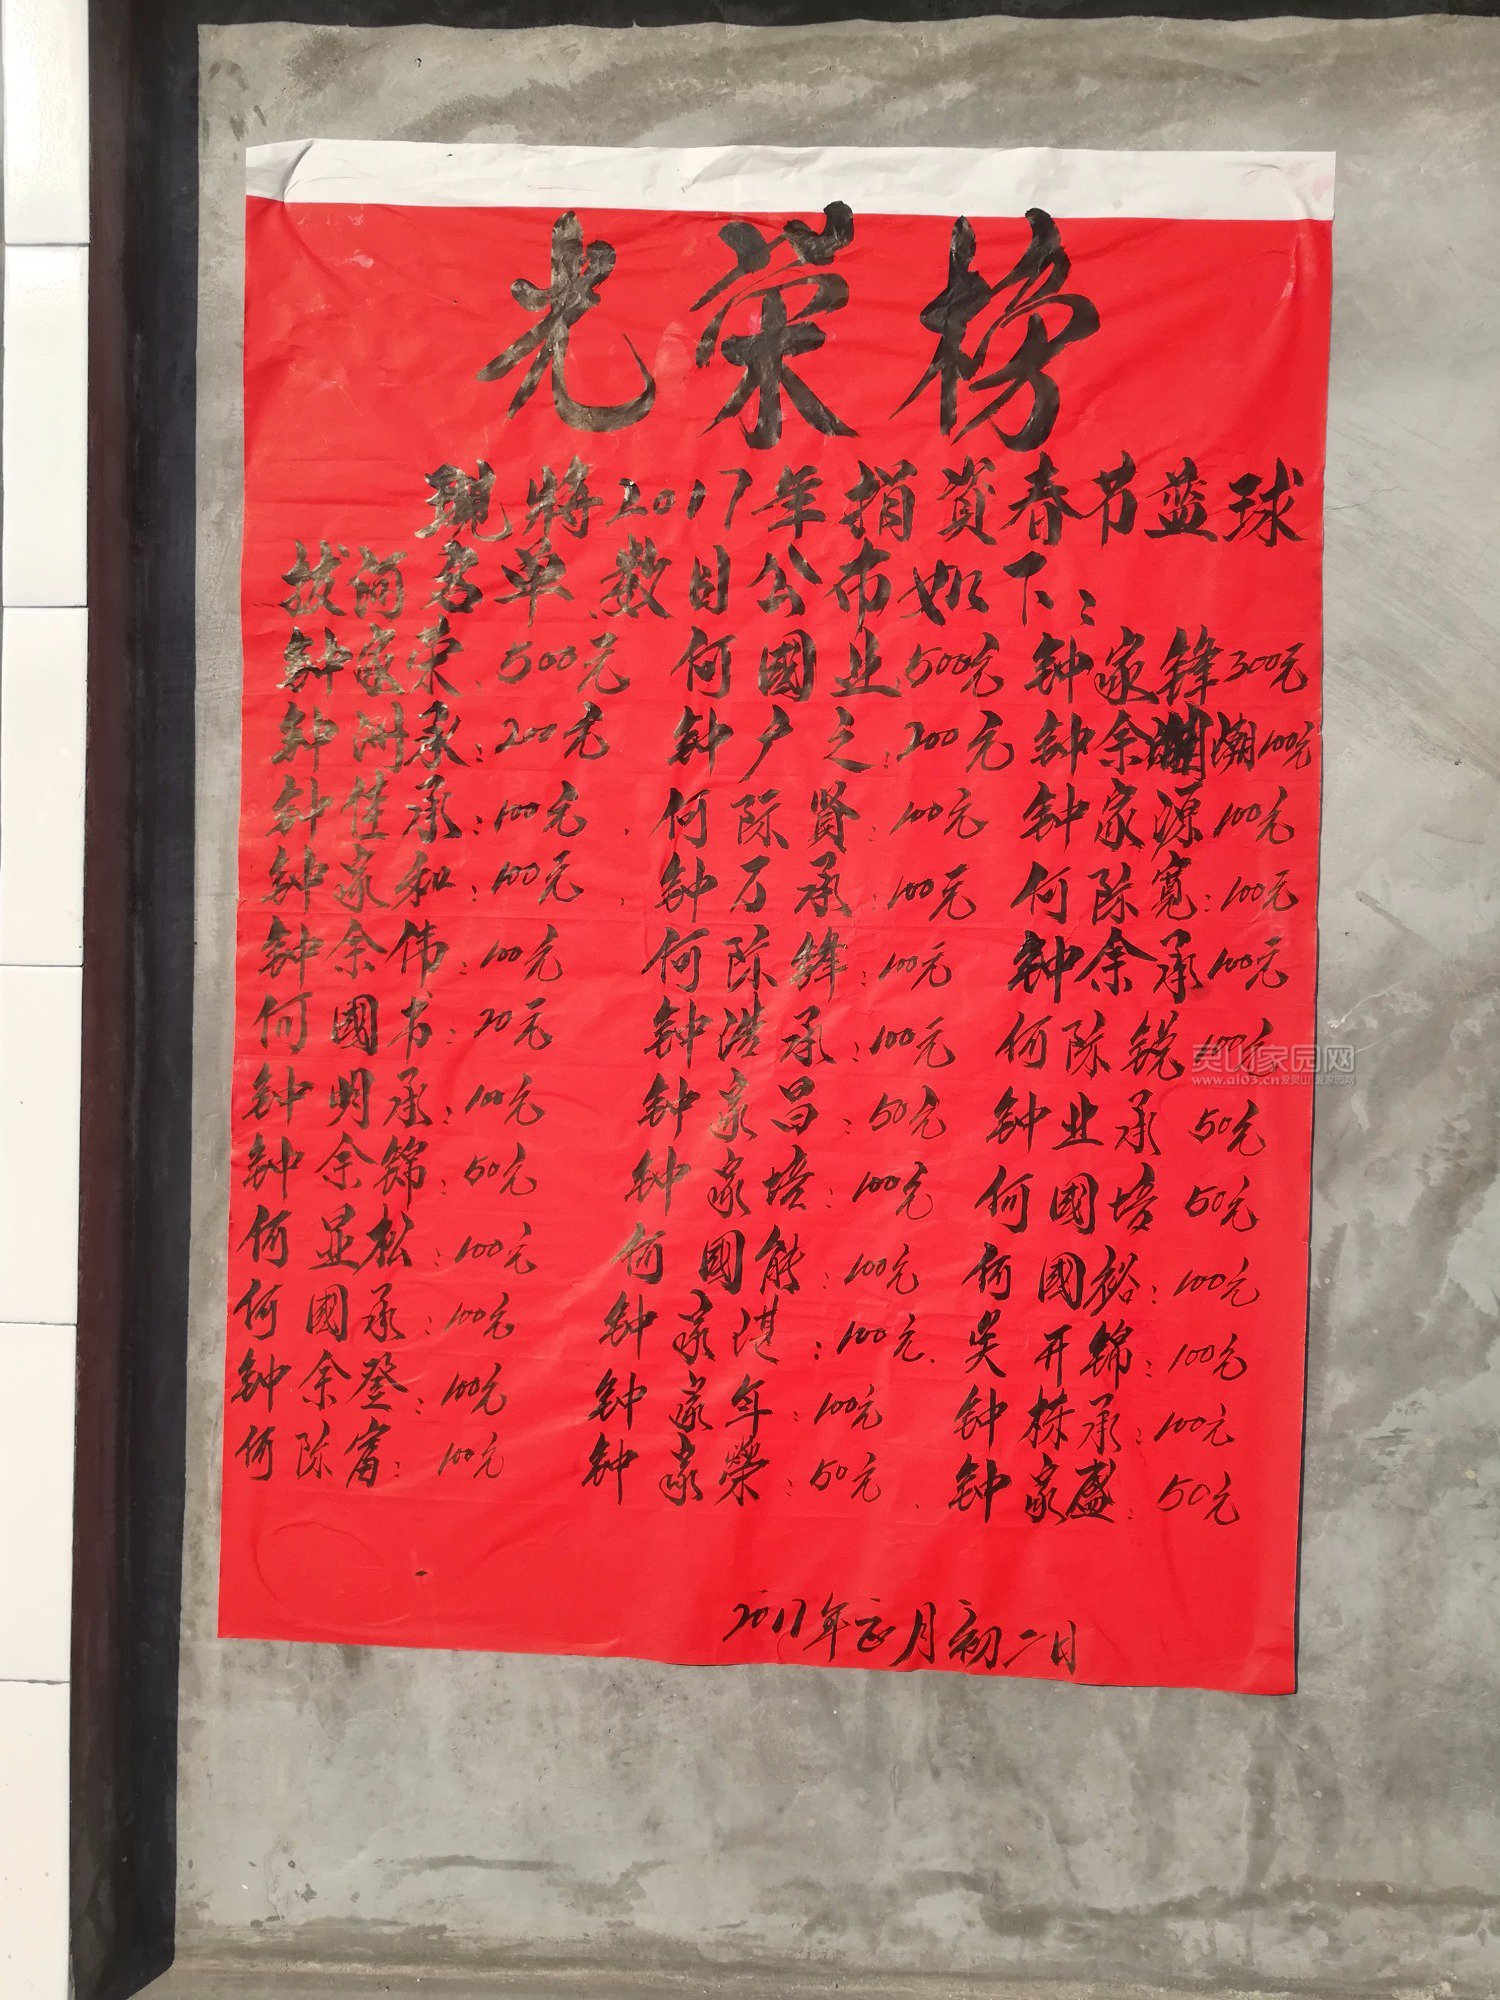 光荣榜
现将2017年捐资春节蓝球
拔河名单数目公布如下:
钟家荣:500元 何國业:500元 钟家锋300元
钟洲承:200元 钟广之:200元 钟余 100元
钟佳承:100元 何际贤:100元 钟家源100元
钟家和:100元 钟万承:100元 何际宽:100元
钟余伟:100元 何际锋:100元 钟余承100元
何國书:20元 钟浩承:100元 何际锐100元
钟明承:100元 钟家昌:50元 钟业承50元
钟余锦:50元 钟家培:100元 何國培50元
何显松:100元 何國能:100元 何國裕:100元
何國承:100元 钟家湛:100元 吴开锦:100元
钟余登:100元 钟家年:100元 钟栋承:100元
何际富:100元 钟家榮:50元 钟家盛:50元
2017年正月初二日
灵山家园网
www.al03.cn爱灵山 爱家园网